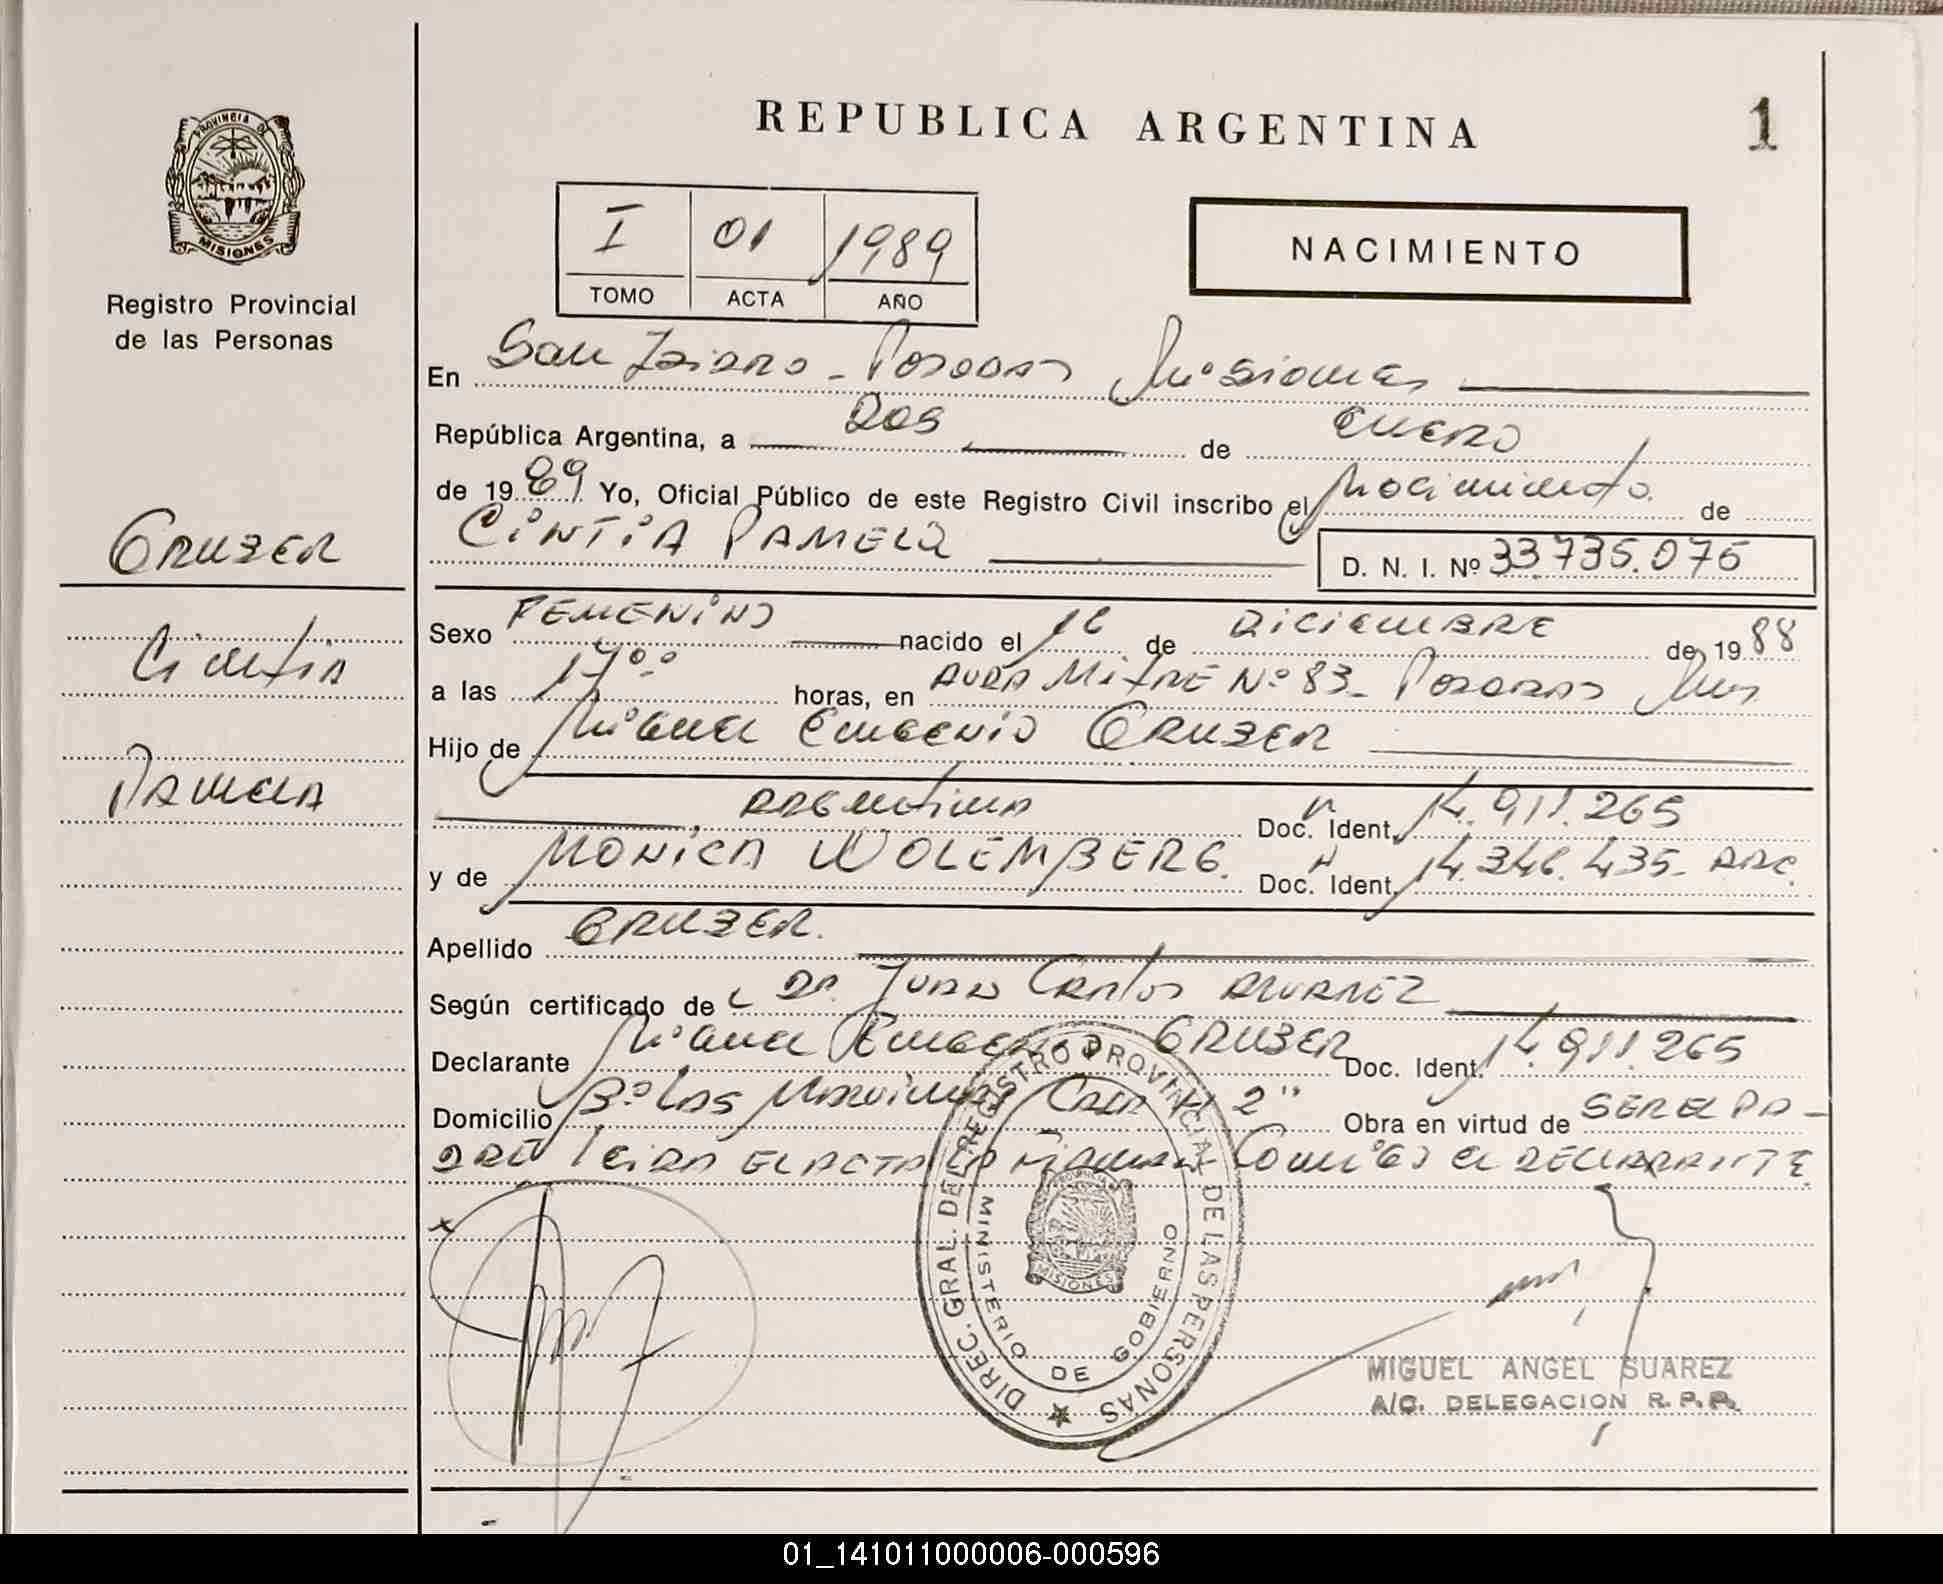 REPUBLICA ARGENTINA
1
PROVINCIA DE
MISIONES
Registro Provincial
de las Personas
I 01 1989
TOMO ACTA AÑO
NACIMIENTO
En San Isidro - Posadas Misiones
República Argentina, a Dos de Enero
de 1989 Yo, Oficial Público de este Registro Civil inscribo el Nacimiento de
CINTIA PAMELA
D. N. I. Nº 33.735.075
GRUBER
Cintia
Pamela
Sexo FEMENINO nacido el 16 de DICIEMBRE de 1988
a las 17°° horas, en AVDA MITRE Nº 83- Posadas Mnes
Hijo de Miguel Eugenio GRUBER
Argentina Doc. Ident. 14.911.265
y de MONICA WOLEMBERG. Doc. Ident. 14.346.435- ARG.
Apellido GRUBER.
Según certificado de Dr. Juan Carlos ALVAREZ
Declarante Miguel Eugenio GRUBER Doc. Ident. 14.911.265
Domicilio Bº Las Casa 2" Obra en virtud de SER EL PA-
DRE Leida EL ACTA Firman Conmigo el DECLARANTE
DIREC. GRAL. DEL REGISTRO PROVINCIAL DE LAS PERSONAS
MINISTERIO DE GOBIERNO
MISIONES
MIGUEL ANGEL SUAREZ
A/C. DELEGACION R. P. P.
01_141011000006-000596